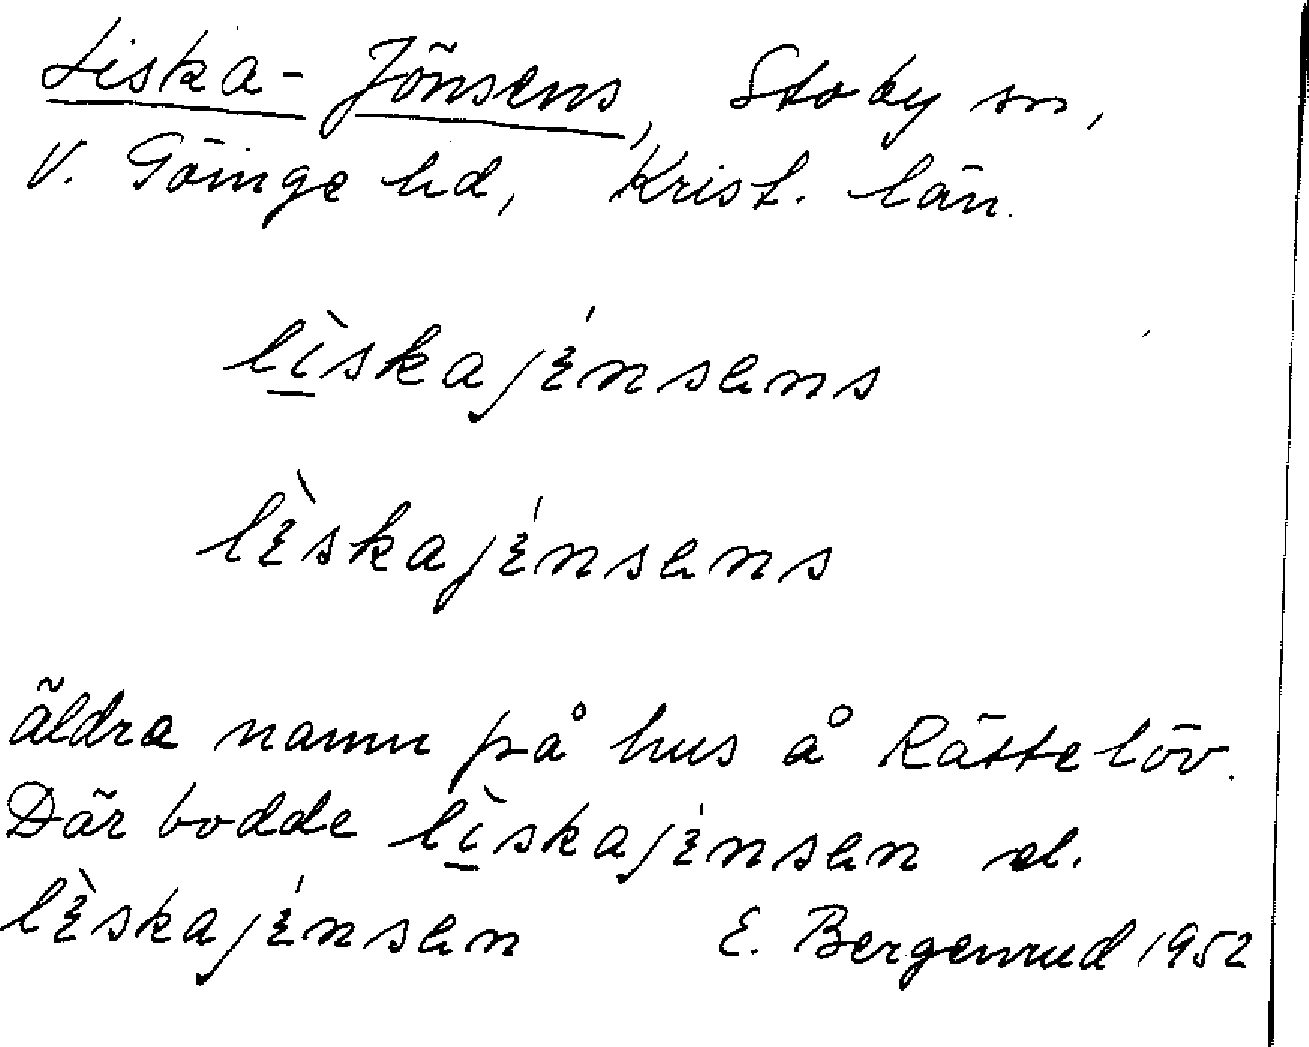 Liska-Jönsens, Stoby sn,
V. Göinge hd, Krist. län.
lìskajɛ́nsɐns
lɛ̀skajɛ́nsɐns
äldre namn på hus å Röttelöv.
Där bodde lìskajɛ́nsɐn el.
lɛ̀skajɛ́nsɐn E. Bergenrud 1952